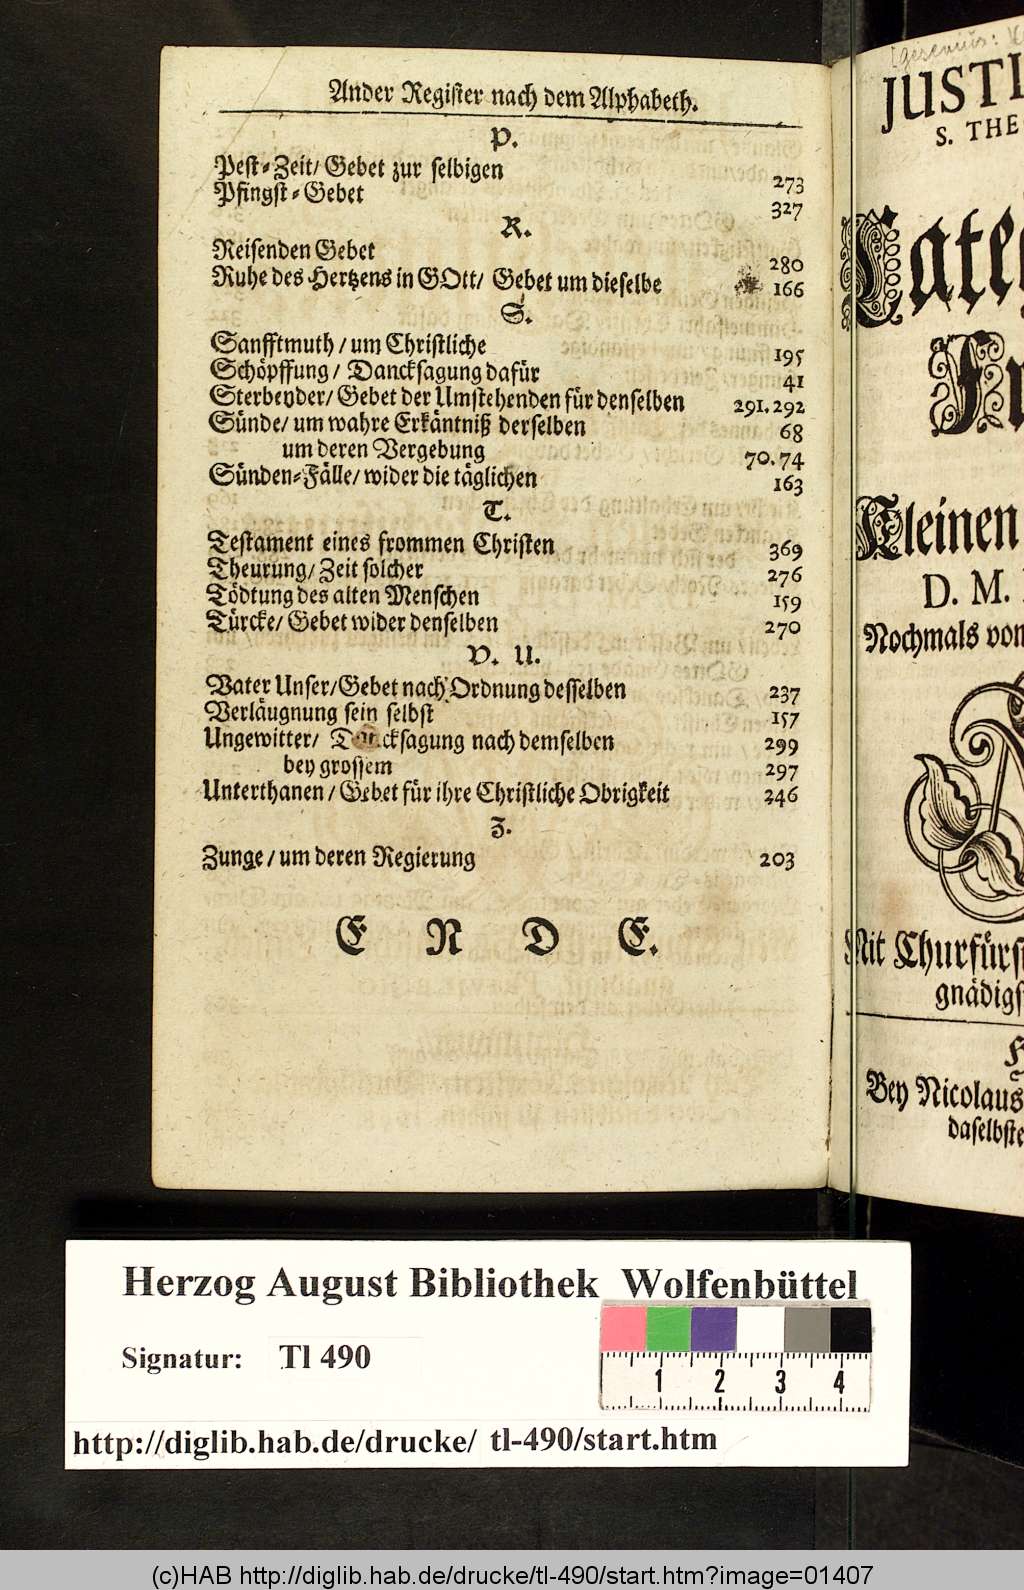 Ander Register nach dem Alphabeth.
P.
Pest-Zeit/ Gebet zur selbigen 273
Pfingst-Gebet 327
R.
Reisenden Gebet 280
Ruhe des Hertzens in GOtt/ Gebet um dieselbe 166
S.
Sanfftmuth / um Christliche 195
Schöpffung / Dancksagung dafür 41
Sterbender/ Gebet der Umstehenden für denselben 291. 292
Sünde/ um wahre Erkäntniß derselben 68
um deren Vergebung 70. 74
Sünden-Fälle/ wider die täglichen 163
T.
Testament eines frommen Christen 369
Theurung/ Zeit solcher 276
Tödtung des alten Menschen 159
Türcke/ Gebet wider denselben 270
V. U.
Vater Unser/Gebet nach Ordnung desselben 237
Verläugnung sein selbst 157
Ungewitter/ Dancksagung nach demselben 299
bey grossem 297
Unterthanen / Gebet für ihre Christliche Obrigkeit 246
Z.
Zunge / um deren Regierung 203
E N D E.
JUSTI
S. THE
Cate
Kleinen
D. M.
Nochmals von
Mit Churfürst
gnädigs
H
Bey Nicolaus
daselbste
Herzog August Bibliothek Wolfenbüttel
Signatur: Tl 490
1 2 3 4
http://diglib.hab.de/drucke/ tl-490/start.htm
(c)HAB http://diglib.hab.de/drucke/tl-490/start.htm?image=01407